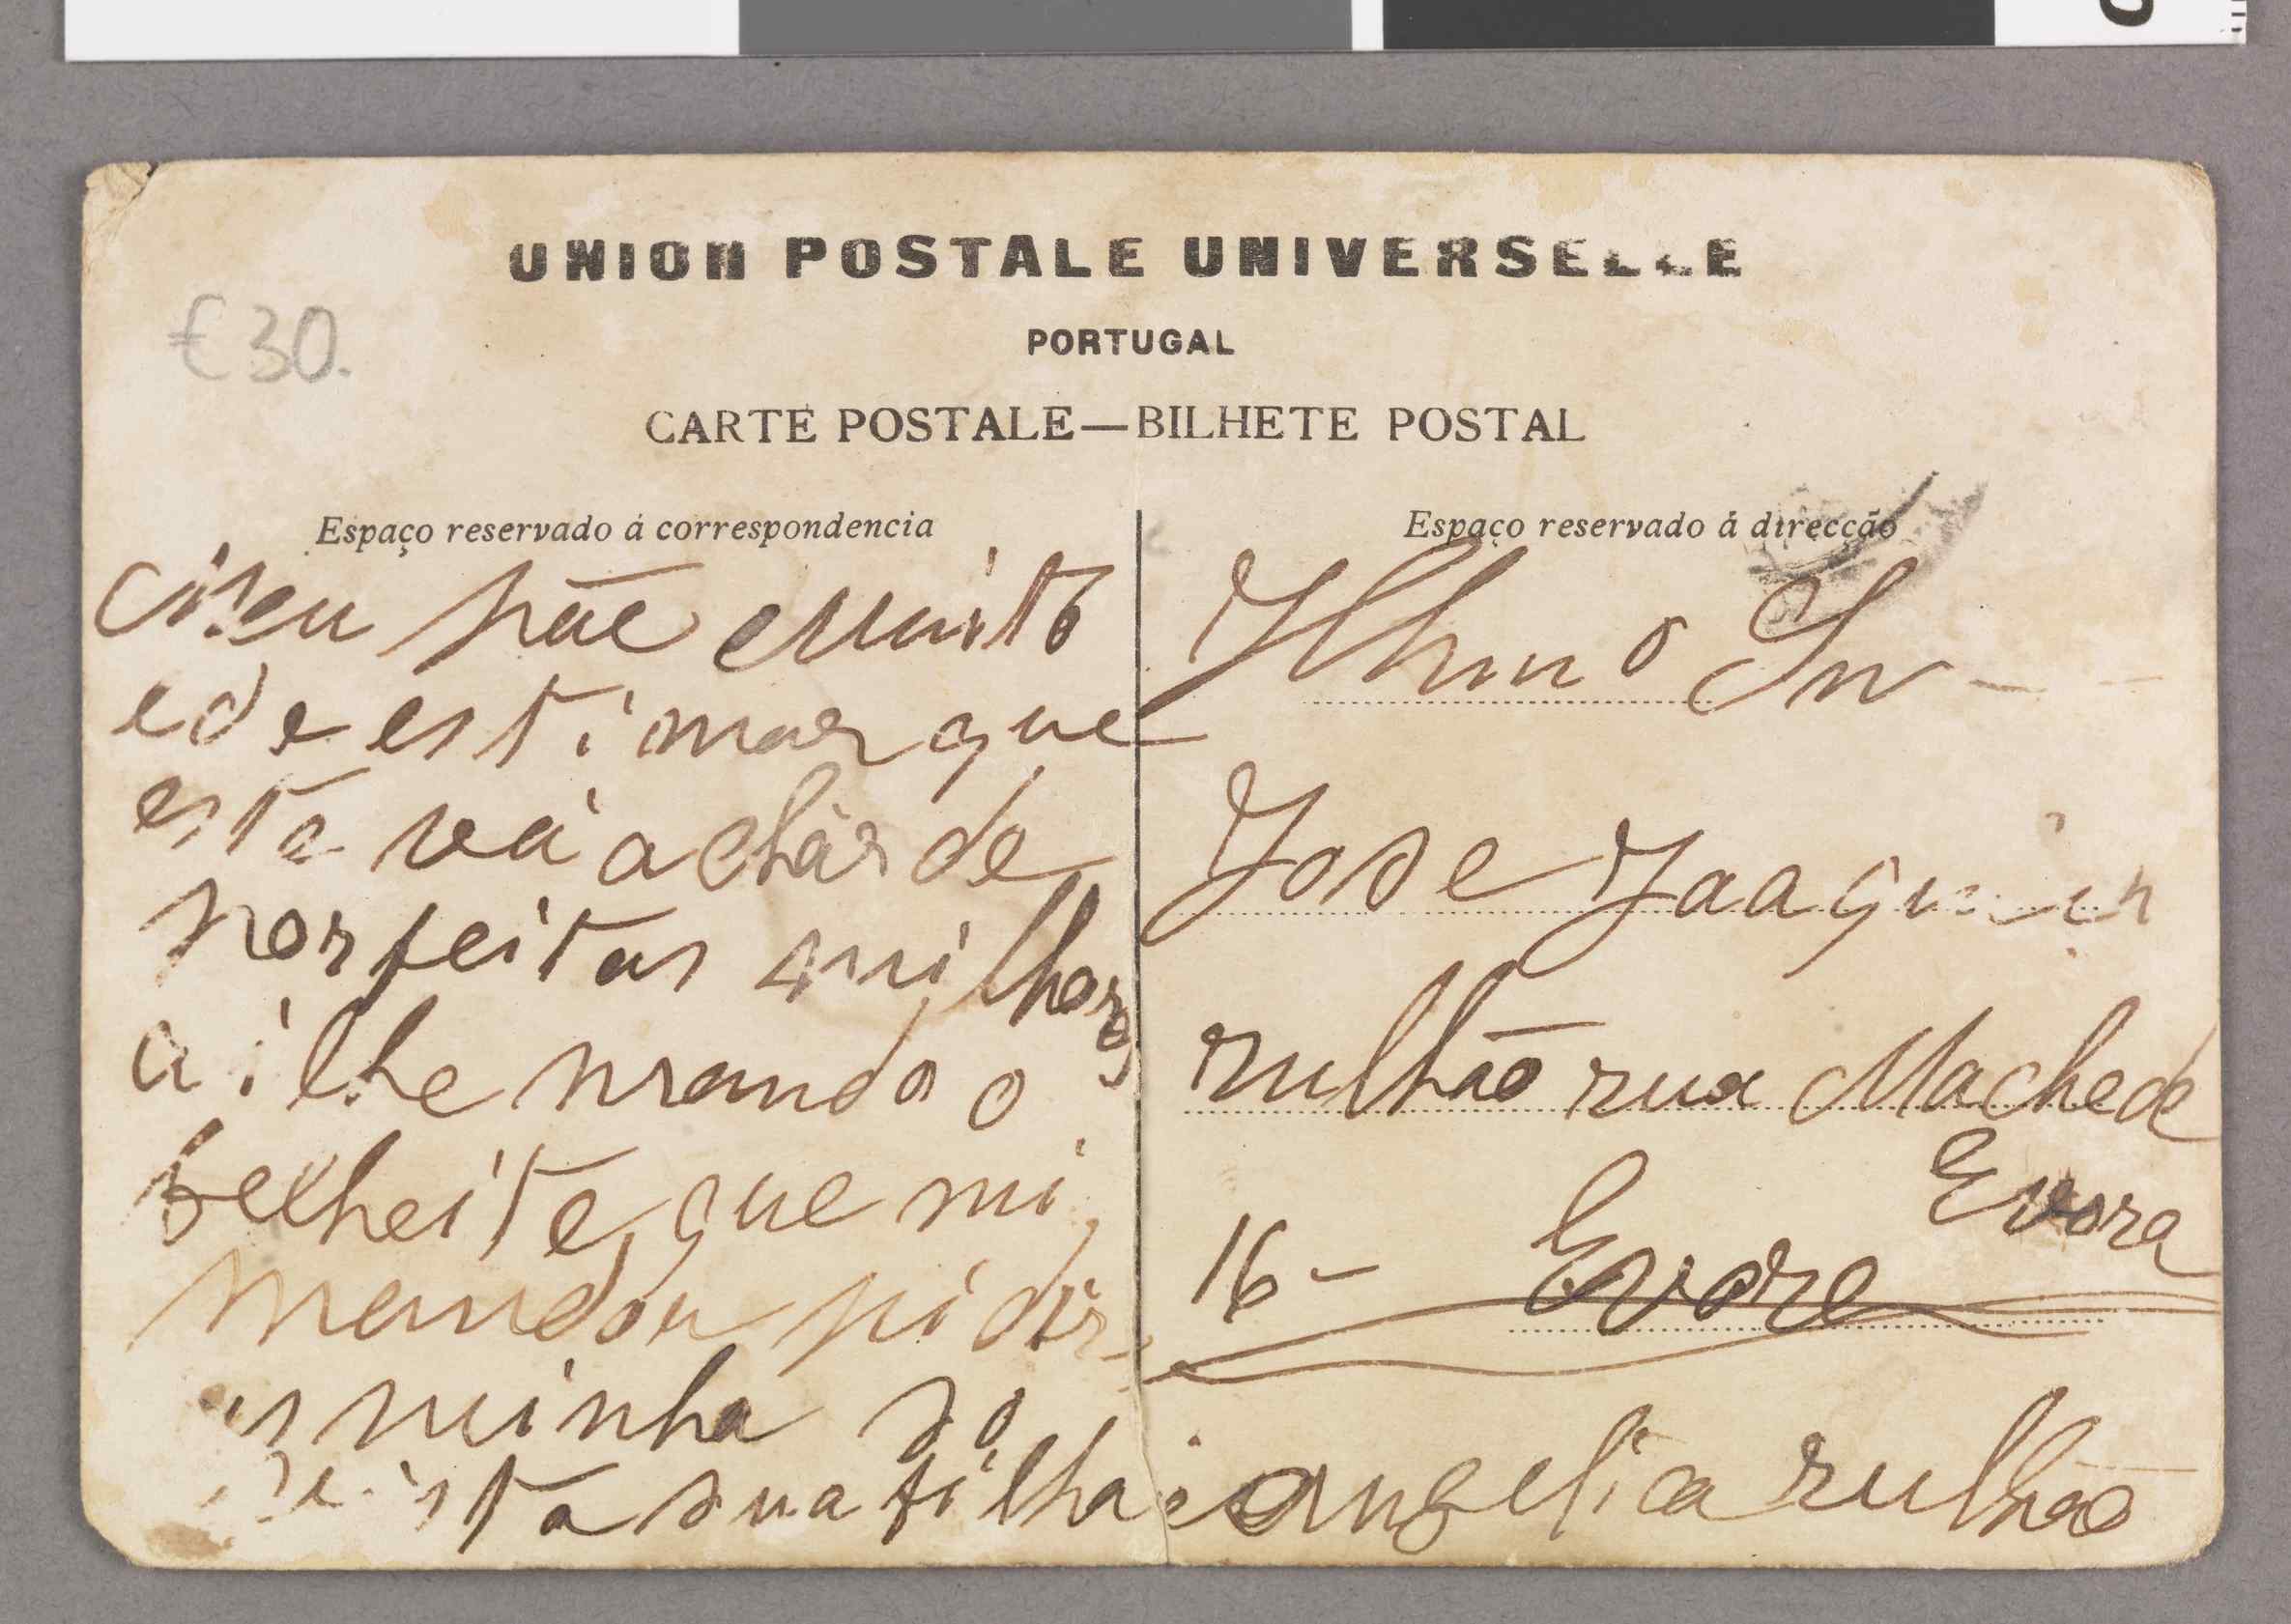 UNION POSTALE UNIVERSELLE
PORTUGAL
€30.
CARTE POSTALE—BILHETE POSTAL
Espaço reservado á correspondencia
Meu páe Muito
ede estimar que
esta vá achár de
porfeitas milhores
ai lhe mando o
belheite que mi
mandou pidir
minha só
esta sua filha
Espaço reservado á direcção
Illmo Snr
Jose Jaaquin
rulhão rua Machede
Evora
16 - Evora
angelica rulhão